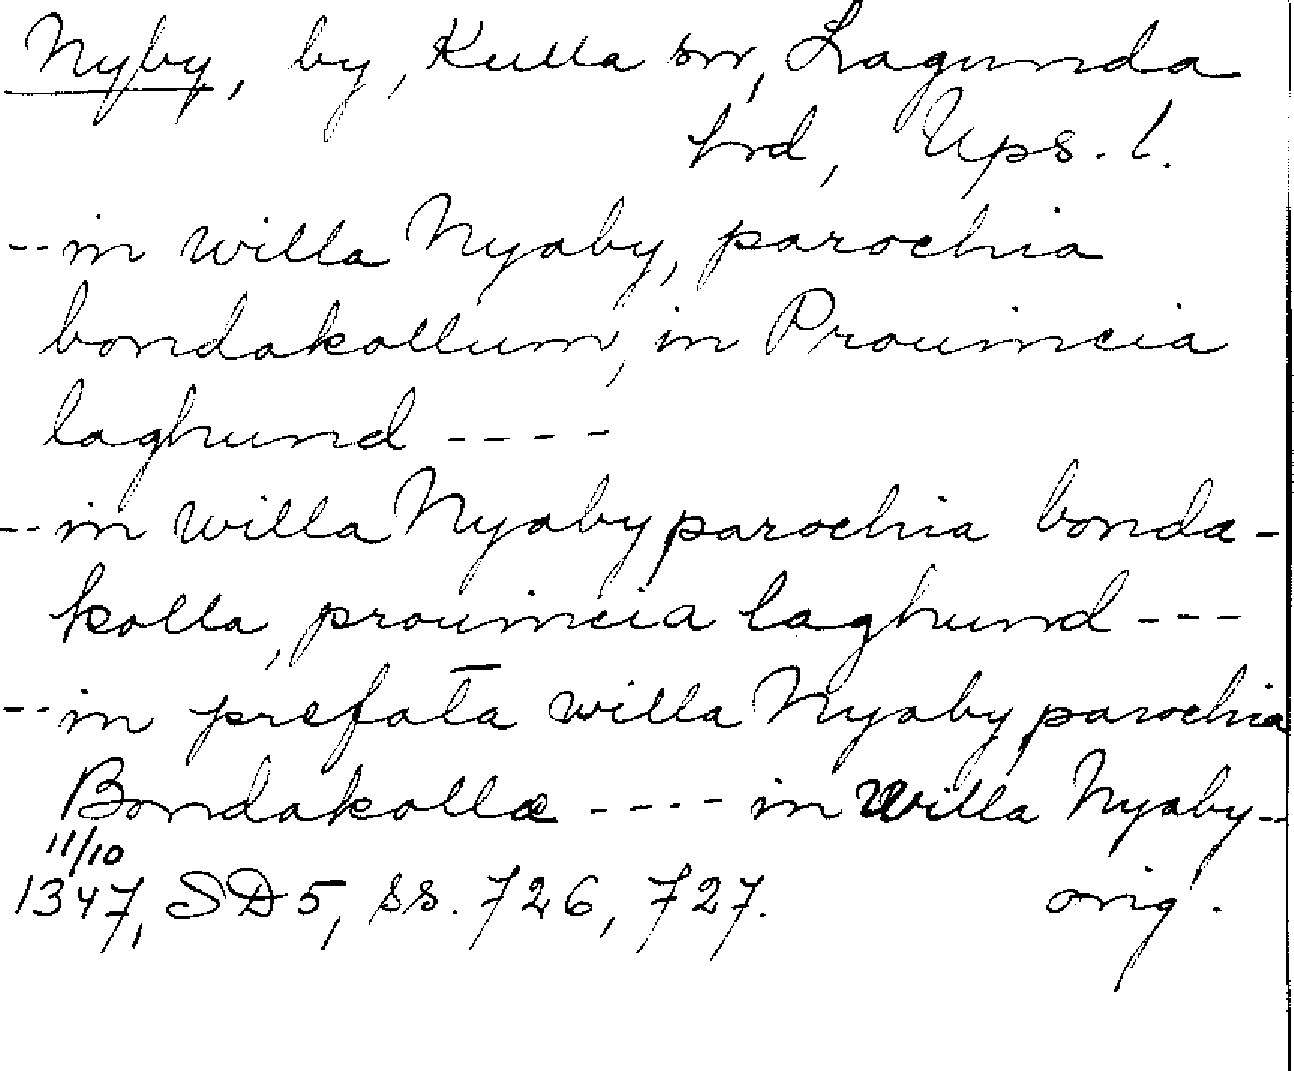 Nyby, by, Kulla sn, Lagunda
hrd, Ups. l.
--in willa Nyaby, parochia
bondakollum, in Prouincia
laghund ----
--in willa Nyaby parochia bonda-
kolla, prouincia laghund ---
--in prefata willa Nyaby, parochia
Bondakolla ---- in willa Nyaby--
11/10
1347, SD 5, ss. 726, 727. orig.